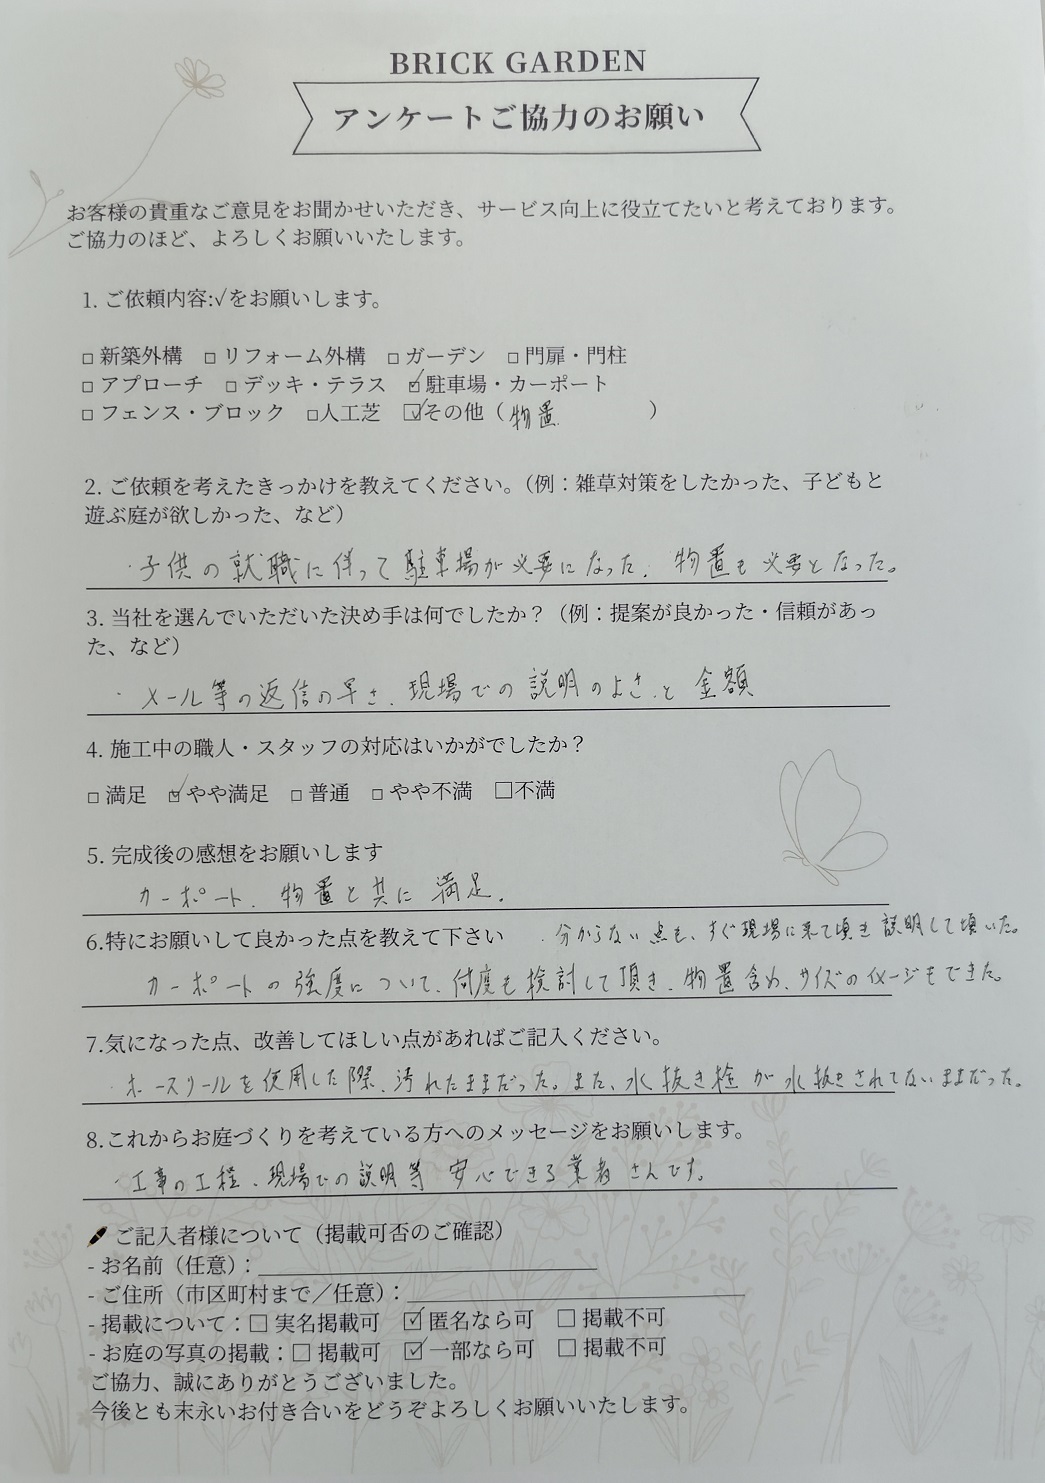 BRICK GARDEN
アンケートご協力のお願い
お客様の貴重なご意見をお聞かせいただき、サービス向上に役立てたいと考えております。
ご協力のほど、よろしくお願いいたします。
1. ご依頼内容:√をお願いします。
□ 新築外構 □ リフォーム外構 □ ガーデン □ 門扉・門柱
□ アプローチ □ デッキ・テラス ☑ 駐車場・カーポート
□ フェンス・ブロック □人工芝 ☑その他（物置）
2. ご依頼を考えたきっかけを教えてください。（例：雑草対策をしたかった、子どもと
遊ぶ庭が欲しかった、など）
・子供の就職に伴って駐車場が必要になった。物置も必要となった。
3. 当社を選んでいただいた決め手は何でしたか？（例：提案が良かった・信頼があっ
た、など）
・メール等の返信の早さ、現場での説明のよさと金額
4. 施工中の職人・スタッフの対応はいかがでしたか？
□ 満足 ☑ やや満足 □ 普通 □ やや不満 □不満
5. 完成後の感想をお願いします
カーポート、物置と共に満足。
6.特にお願いして良かった点を教えて下さい ・分からない点も、すぐ現場に来て頂き説明して頂いた。
カーポートの強度について、何度も検討して頂き、物置含め、サイズのイメージもできた。
7.気になった点、改善してほしい点があればご記入ください。
・ホースリールを使用した際、汚れたままだった。また、水抜き栓が水抜きされてないままだった。
8.これからお庭づくりを考えている方へのメッセージをお願いします。
・工事の工程、現場での説明等安心できる業者さんです。
ご記入者様について（掲載可否のご確認）
- お名前（任意）：
- ご住所（市区町村まで／任意）：
- 掲載について：□ 実名掲載可 ☑ 匿名なら可 □ 掲載不可
- お庭の写真の掲載：□ 掲載可 ☑ 一部なら可 □ 掲載不可
ご協力、誠にありがとうございました。
今後とも末永いお付き合いをどうぞよろしくお願いいたします。